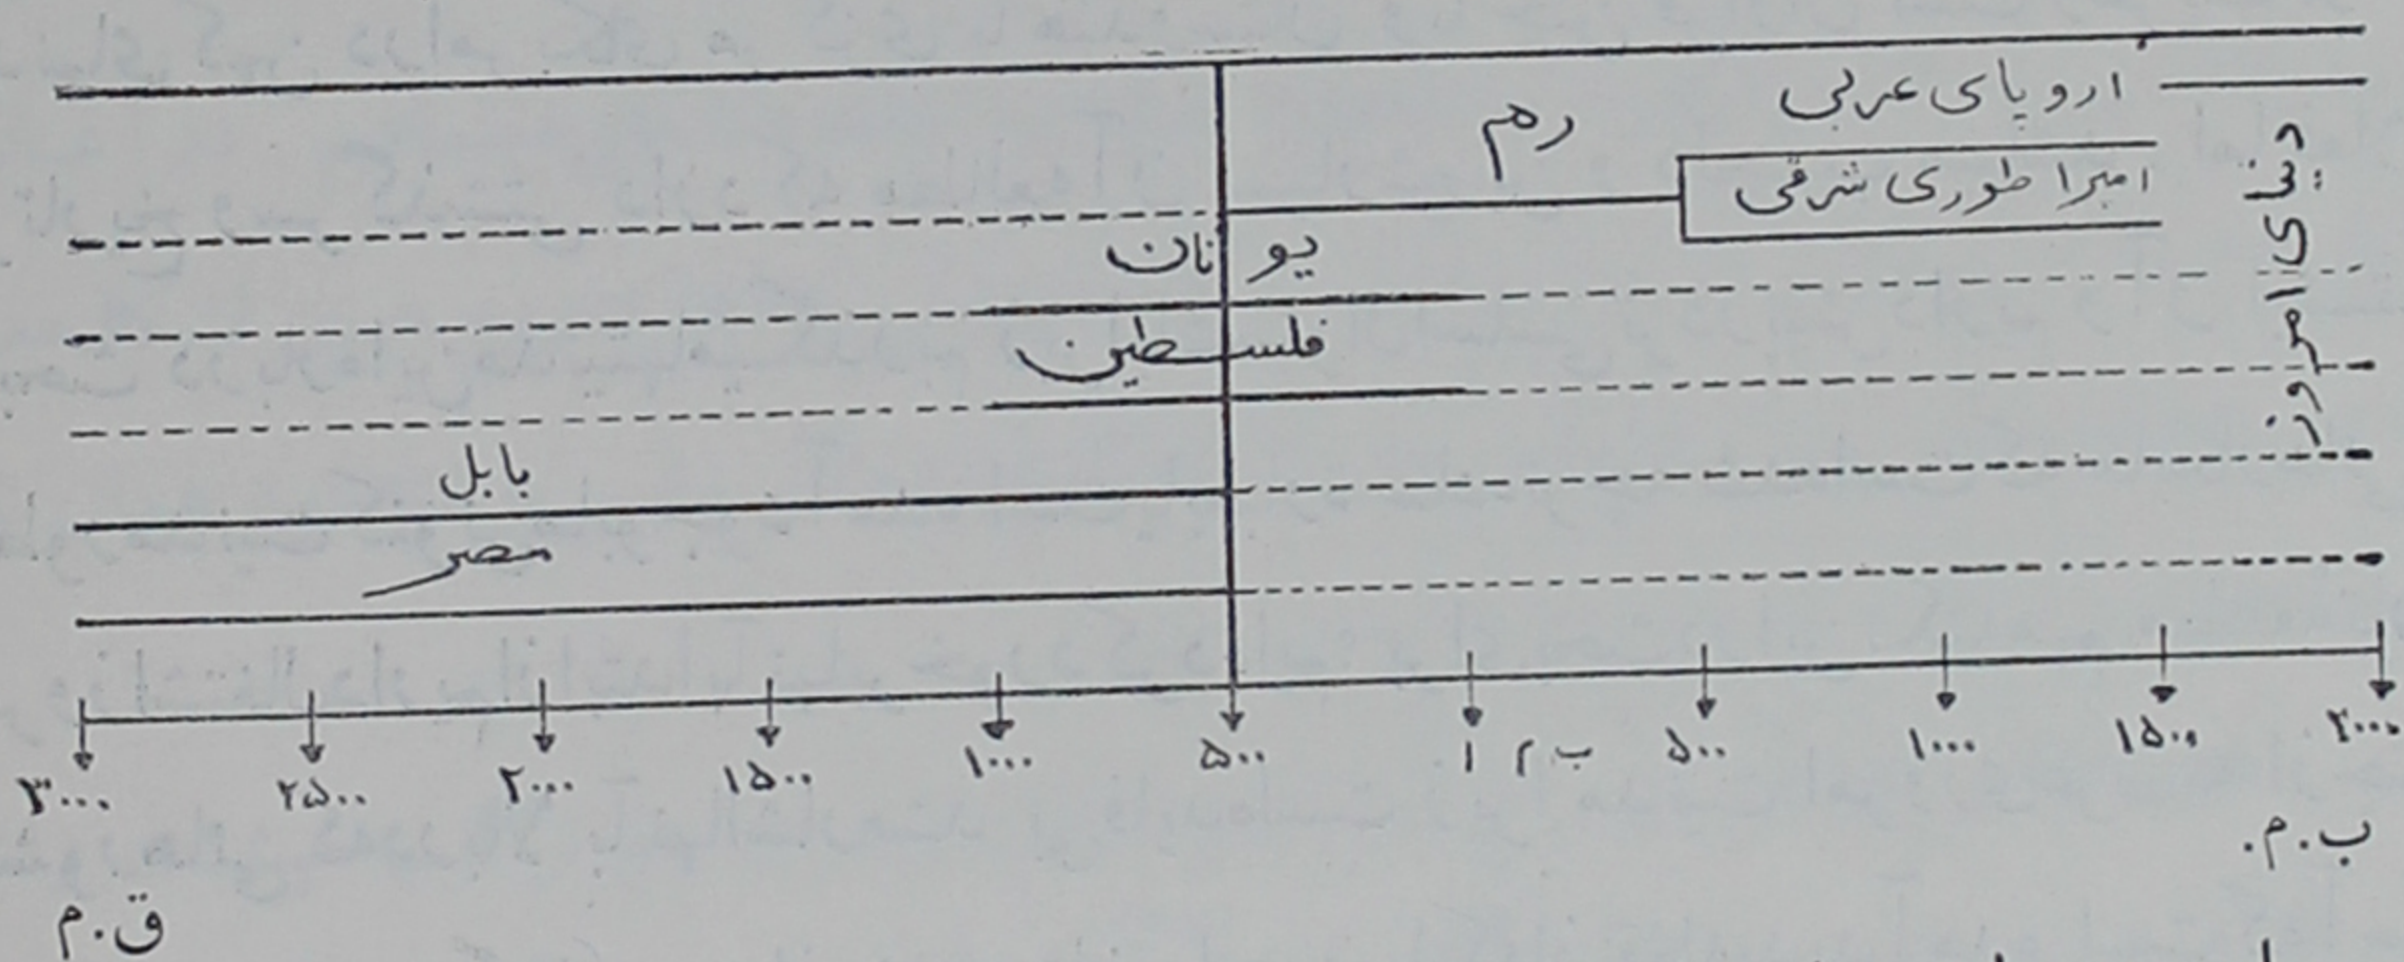 اروپای عربی
رم
امبراطوری شرقی
دنیای امروز
یونان
فلسطین
بابل
مصر
۳۰۰۰ ۲۵۰۰ ۲۰۰۰ ۱۵۰۰ ۱۰۰۰ ۵۰۰ ۱ ب م ۵۰۰ ۱۰۰۰ ۱۵۰۰ ۲۰۰۰
ب.م.
ق.م